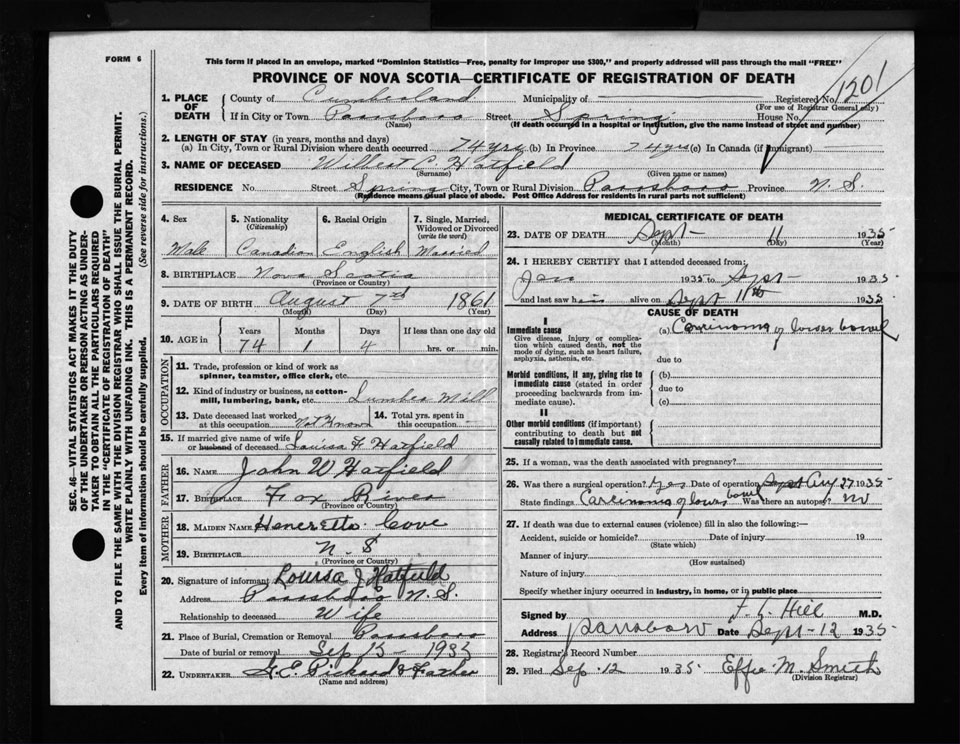 FORM 6
This form if placed in an envelope, marked "Dominion Statistics—Free, penalty for improper use $300," and properly addressed will pass through the mail "FREE"
PROVINCE OF NOVA SCOTIA—CERTIFICATE OF REGISTRATION OF DEATH
1. PLACE OF DEATH
County of Cumberland Municipality of Registered No. 1201
(For use of Registrar General only)
If in City or Town Parrsboro Street Spring House No.
(Name) (If death occurred in a hospital or institution, give the name instead of street and number)
2. LENGTH OF STAY (in years, months and days)
(a) In City, Town or Rural Division where death occurred 74 yrs (b) In Province 74 yrs (c) In Canada (if immigrant)
3. NAME OF DECEASED Wilbert C. Hatfield
(Surname) (Given name or names)
RESIDENCE No. Street Spring City, Town or Rural Division Parrsboro Province N. S.
(Residence means usual place of abode. Post Office Address for residents in rural parts not sufficient)
4. Sex
Male
5. Nationality
(Citizenship)
Canadian
6. Racial Origin
English
7. Single, Married, Widowed or Divorced
(write the word)
Married
8. BIRTHPLACE Nova Scotia
(Province or Country)
9. DATE OF BIRTH August 7th 1861
(Month) (Day) (Year)
10. AGE in
Years Months Days If less than one day old
74 1 4 hrs. or min.
OCCUPATION
11. Trade, profession or kind of work as
spinner, teamster, office clerk, etc.
12. Kind of industry or business, as cotton-
mill, lumbering, bank, etc. Lumber Mill
13. Date deceased last worked
at this occupation Not Known
14. Total yrs. spent in
this occupation
15. If married give name of wife
or husband of deceased Louisa J Hatfield
FATHER
16. NAME John W Hatfield
17. BIRTHPLACE Fox River
(Province or Country)
MOTHER
18. MAIDEN NAME Heneretta Cove
19. BIRTHPLACE N. S
(Province or Country)
20. Signature of informant Louisa J Hatfield
Address Parrsboro N. S.
Relationship to deceased Wife
21. Place of Burial, Cremation or Removal Parrsboro
Date of burial or removal Sep 13 - 1935
22. UNDERTAKER
(Name and address)
MEDICAL CERTIFICATE OF DEATH
23. DATE OF DEATH Sept 11 1935
(Month) (Day) (Year)
24. I HEREBY CERTIFY that I attended deceased from:
Jan 1935 to Sept 1935
and last saw him alive on Sept 11th 1935
CAUSE OF DEATH
I
Immediate cause
Give disease, injury or complica-
tion which caused death, not the
mode of dying, such as heart failure,
asphyxia, asthenia, etc.
(a) Carcinoma of lower bowel
due to
Morbid conditions, if any, giving rise to
immediate cause (stated in order
proceeding backwards from im-
mediate cause).
(b)
due to
(c)
II
Other morbid conditions (if important)
contributing to death but not
causally related to immediate cause.
25. If a woman, was the death associated with pregnancy?
26. Was there a surgical operation? Yes Date of operation Sept Aug 27 1935
State findings Carcinoma of lower bowel Was there an autopsy? no
27. If death was due to external causes (violence) fill in also the following:—
Accident, suicide or homicide? Date of injury 19
(State which)
Manner of injury
(How sustained)
Nature of injury
Specify whether injury occurred in industry, in home, or in public place
Signed by F. L. Hill M.D.
Address Parrsboro Date Sept-12 1935
28. Registrar's Record Number
29. Filed Sep. 12 1935 Effie M. Smith
(Division Registrar)
SEC. 46—VITAL STATISTICS ACT MAKES IT THE DUTY
OF THE UNDERTAKER OR PERSON ACTING AS UNDER-
TAKER TO OBTAIN ALL THE PARTICULARS REQUIRED
IN THE "CERTIFICATE OF REGISTRATION OF DEATH"
AND TO FILE THE SAME WITH THE DIVISION REGISTRAR WHO SHALL ISSUE THE BURIAL PERMIT.
WRITE PLAINLY WITH UNFADING INK. THIS IS A PERMANENT RECORD.
Every item of information should be carefully supplied. (See reverse side for instructions.)